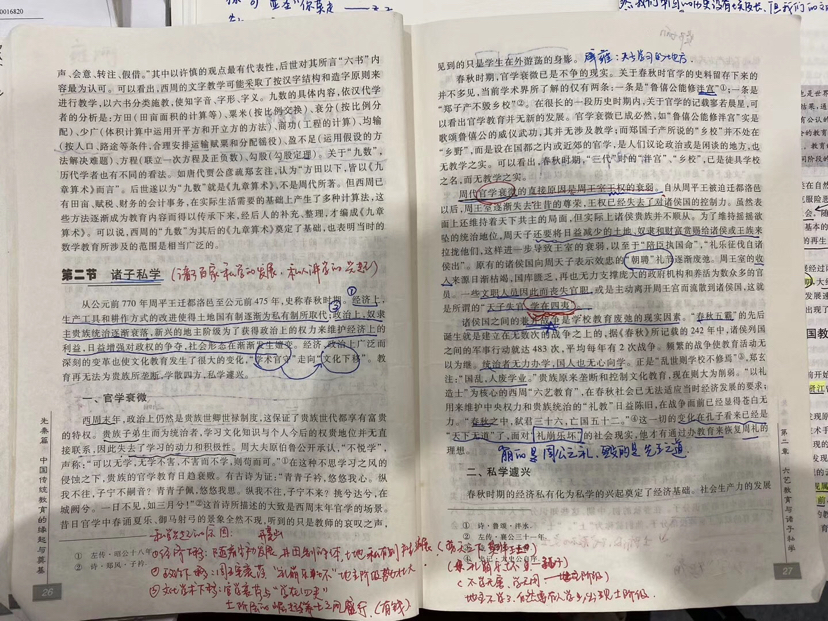 声、会意、转注、假借。”其中以许慎的观点最有代表性，后世对其所言“六书”内
容最为认可。可以看出，西周的文字教学可能采取了按汉字结构和造字原则来
进行教学，以六书分类施教，使知字音、字形、字义。九数的具体内容，依汉代学
者的分析是：方田（田亩面积的计算等）、粟米（按比例交换）、衰分（按比例分
配）、少广（体积计算中运用开平方和开立方的方法）、商功（工程的计算）、均输
（按人口、路途等条件，合理安排运输赋粟和分配徭役）、盈不足（运用假设的方
法解决难题）、方程（联立一次方程及正负数）、勾股（勾股定理）。关于“九数”，
历代学者也有不同的看法。如唐代贾公彦疏郑玄注，认为“方田以下，皆以《九
章算术》而言”。后世遂以为“九数”就是《九章算术》，不是周代所著。但西周已
有田亩、赋税、财务的会计事务，在实际生活需要的基础上产生了多种计算法，这
些方法逐渐成为教育内容而得以传承下来，经后人的补充、整理，才编成《九章
算术》。可以说，西周的“九数”为其后的《九章算术》奠定了基础，也表明当时的
数学教育所涉及的范围是相当广泛的。
第二节 诸子私学
（诸子百家私学的发展，私人讲学的兴起）
从公元前 770 年周平王迁都洛邑至公元前 475 年，史称春秋时期。经济上，
生产工具和耕作方式的改进使得土地国有制逐渐为私有制所取代；政治上，奴隶
主贵族统治逐渐衰落，新兴的地主阶级为了获得政治上的权力来维护经济上的
利益，日益增强对政权的争夺，社会形态在渐渐发生嬗变。经济、政治上广泛而
深刻的变革也使文化教育发生了很大的变化，“学术官守”走向“文化下移”。教
育再无法为贵族所垄断，学散四方，私学遽兴。
一、官学衰微
西周末年，政治上仍然是贵族世卿世禄制度，这保证了贵族世代都享有富贵
的特权。贵族子弟生而为统治者，学习文化知识与个人今后的权贵地位并无直
接联系，因此失去了学习的动力和积极性。周大夫原伯鲁公开承认，“不悦学”，
声称：“可以无学，无学不害，不害而不学，则苟而可。”①在这种不思学习之风的
侵蚀之下，贵族的官学教育日趋衰败。有古诗为证：“青青子衿，悠悠我心。纵
我不往，子宁不嗣音？青青子佩，悠悠我思。纵我不往，子宁不来？挑兮达兮，在
城阙兮。一日不见，如三月兮！”②这首诗所描述的大致是西周末年官学的场景。
昔日官学中春诵夏乐、御马射弓的景象全然不现，听到的只是教师的哀叹之声，
① 左传·昭公十八年
② 诗·郑风·子衿
26
先秦篇 中国传统教育的缔起与奠基
见到的只是学生在外游荡的身影。
辟雍：天子学习的地方
春秋时期，官学衰微已是不争的现实。关于春秋时官学的史料留存下来的
并不多见，当前学术界所了解的仅有两条：一条是“鲁僖公能修泮宫”①；一条是
“郑子产不毁乡校”②。在很长的一段历史时期内，关于官学的记载寥若晨星，可
以看出官学教育并无新的发展。官学衰微已成必然，如“鲁僖公能修泮宫”实是
歌颂鲁僖公的威仪武功，其并无涉及教学；而郑国子产所说的“乡校”并不处在
“乡野”，而是设在国都之内或近郊的官学，是人们议论政治或是闲谈的地方，也
无教学之实。可以看出，春秋时期，“三代”时的“泮宫”、“乡校”，已是徒具学校
之名，而无教学之实。
周代官学衰微的直接原因是周王室王权的衰弱。自从周平王被迫迁都洛邑
以后，周王室逐渐失去往昔的尊荣，王权已经失去了对诸侯国的控制力。虽然表
面上还维持着天下共主的局面，但实际上诸侯贵族并不顺从。为了维持摇摇欲
坠的统治地位，周天子还要将日益减少的土地、奴隶和财富赏赐给诸侯或王族来
拉拢他们，这样进一步导致王室的衰弱，以至于“陪臣执国命”，“礼乐征伐自诸
侯出”。原有的诸侯国向周天子表示效忠的“朝聘”礼节逐渐废弛。周王室的收
入来源日渐枯竭，国库匮乏，再也无力支撑庞大的政府机构和养活为数众多的官
员。一些文职人员因此而丧失官职，或是主动离开周王宫而流散到诸侯国，这就
是所谓的“天子失官，学在四夷”。
诸侯国之间的争霸战争是学校教育废弛的现实因素。“春秋五霸”的先后
诞生就是建立在无数次的战争之上的，据《春秋》所记载的 242 年中，诸侯列国
之间的军事行动就达 483 次，平均每年有 2 次战争。频繁的战争使教育活动无
以为继。统治者无力办学，国人也无心向学。正是“乱世则学校不修焉”③。郑玄
注：“国乱，人废学业。”贵族原来垄断和控制文化教育，现在则大为削弱。“以礼
造士”为核心的西周“六艺教育”，在春秋社会已无法适应当时经济发展的要求；
用来维护中央权力和贵族统治的“礼教”日益陈旧，在战争面前已经显得苍白无
力。“春秋之中，弑君三十六，亡国五十二。”④这一切的变化在孔子看来已经是
“天下无道”了，面对“礼崩乐坏”的社会现实，他才有通过办教育来恢复周礼的
理想。
崩的是周公之礼，毁的是先王之道
二、私学遽兴
春秋时期的经济私有化为私学的兴起奠定了经济基础。社会生产力的发展
① 诗·鲁颂·泮水.
② 左传·襄公三十一年.
27
第二章 六艺教育与诸子私学